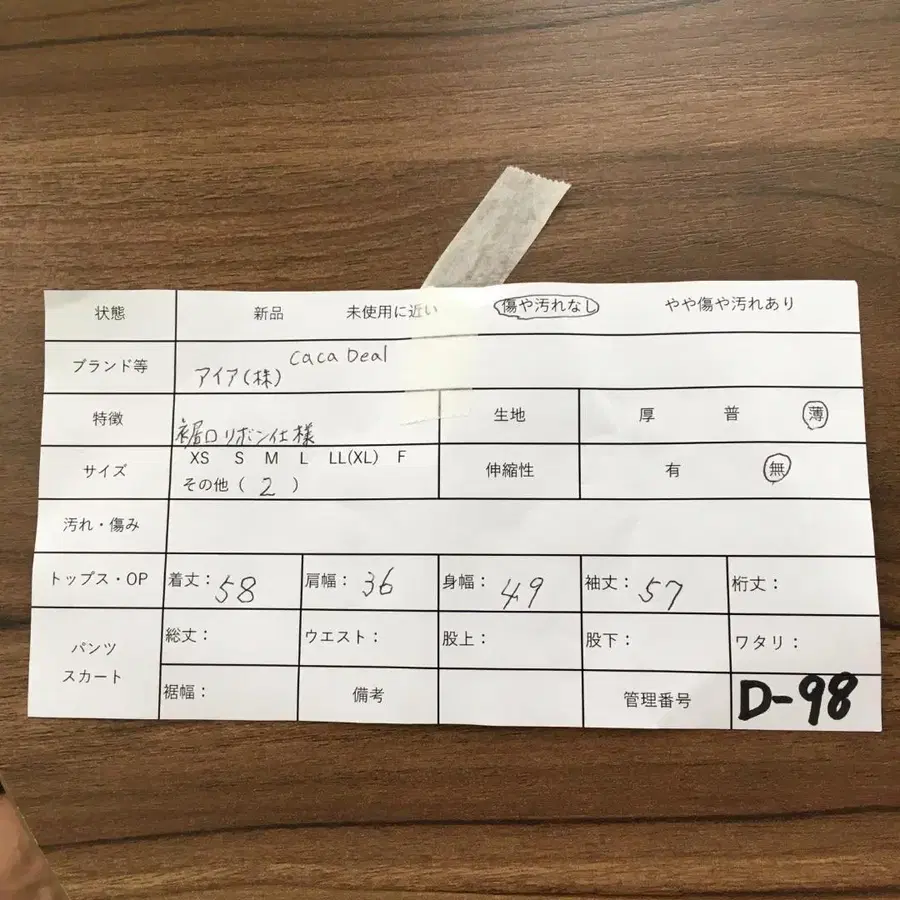 状態 新品 未使用に近い 傷や汚れなし やや傷や汚れあり
ブランド等 caca Deal
アイア(株)
特徴 裾口リボン仕様 生地 厚 普 薄
サイズ XS S M L LL(XL) F 伸縮性 有 無
その他 ( 2 )
汚れ・傷み
トップス・OP 着丈: 58 肩幅: 36 身幅: 49 袖丈: 57 裄丈:
パンツ 総丈: ウエスト: 股上: 股下: ワタリ:
スカート
裾幅: 備考 管理番号 D-98